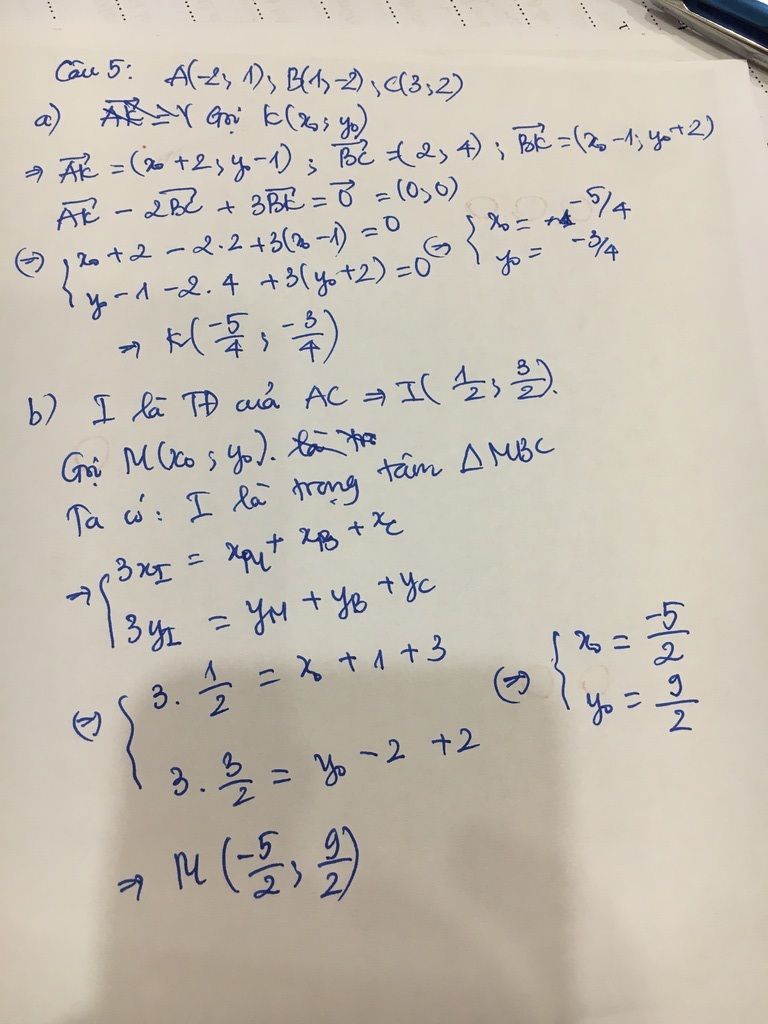 Câu 5: A(-2; 1); B(1; -2); C(3; 2)
a) Gọi K(x₀; y₀)
⇒ \overrightarrow{AK} = (x₀ + 2; y₀ - 1); \overrightarrow{BC} = (2; 4); \overrightarrow{BK} = (x₀ - 1; y₀ + 2)
\overrightarrow{AK} - 2\overrightarrow{BC} + 3\overrightarrow{BK} = \overrightarrow{0} = (0; 0)
⇔ { x₀ + 2 - 2.2 + 3(x₀ - 1) = 0 ⇔ { x₀ = -5/4
y₀ - 1 - 2.4 + 3(y₀ + 2) = 0 y₀ = -3/4
⇒ K(-5/4; -3/4)
b) I là TĐ của AC ⇒ I(1/2; 3/2).
Gọi M(x₀; y₀).
Ta có: I là trọng tâm ΔMBC
⇒ { 3x_I = x_M + x_B + x_C
3y_I = y_M + y_B + y_C
⇔ { 3. 1/2 = x₀ + 1 + 3 ⇔ { x₀ = -5/2
3. 3/2 = y₀ - 2 + 2 y₀ = 9/2
⇒ M(-5/2; 9/2)